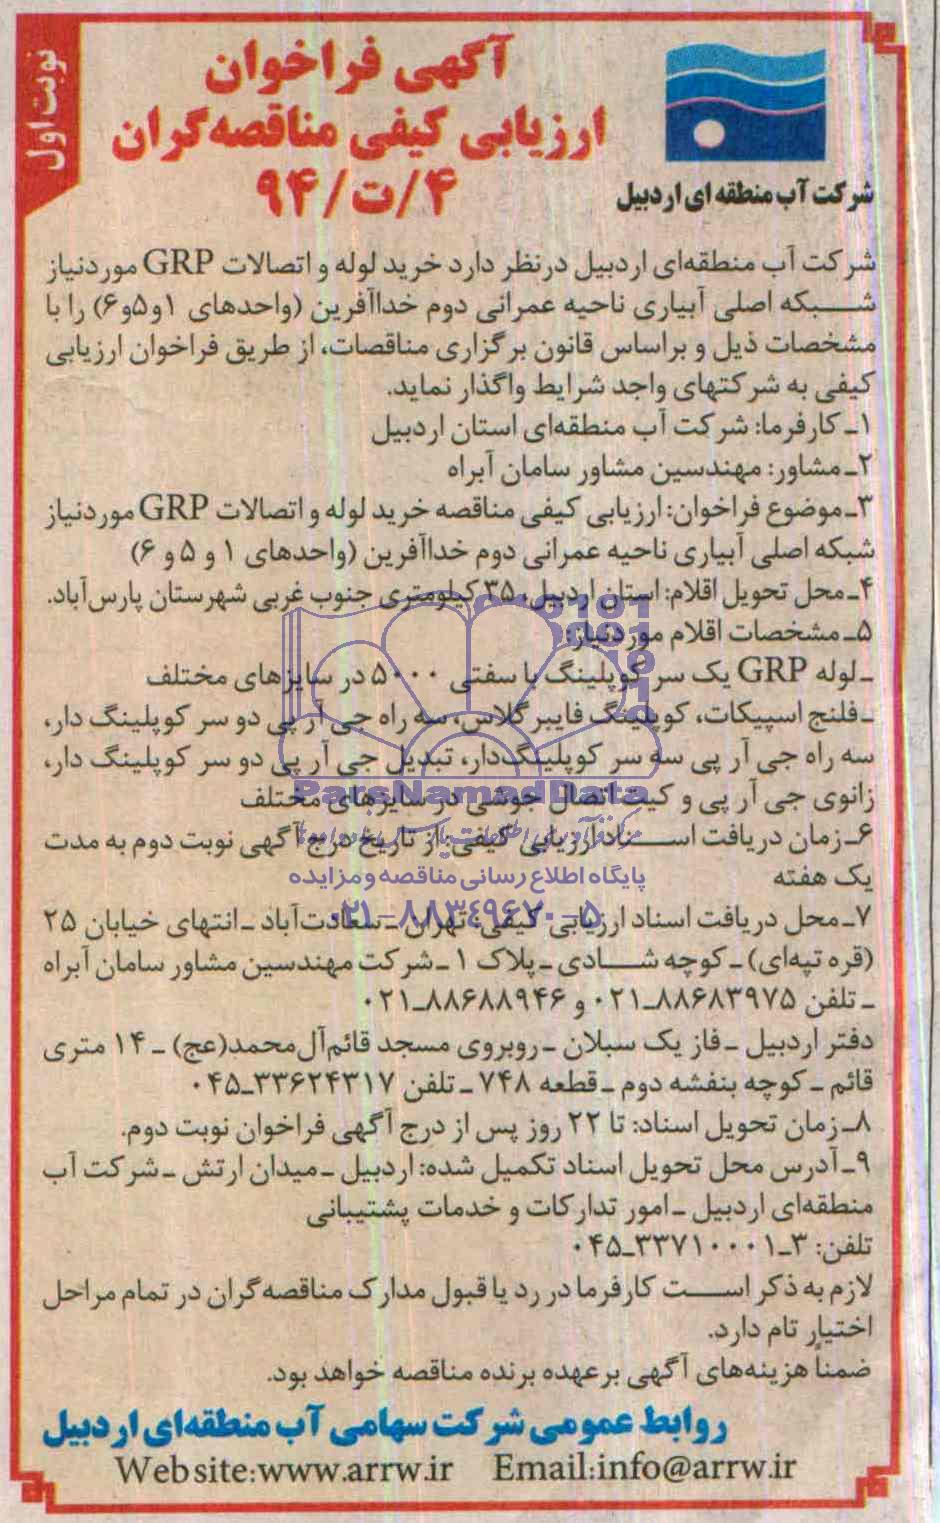 نوبت اول
آگهی فراخوان
ارزیابی کیفی مناقصه‌گران
۹۴/ت/۴
شرکت آب منطقه ای اردبیل
شرکت آب منطقه‌ای اردبیل درنظر دارد خرید لوله و اتصالات GRP موردنیاز
شبکه اصلی آبیاری ناحیه عمرانی دوم خداآفرین (واحدهای ۱و۵و۶) را با
مشخصات ذیل و براساس قانون برگزاری مناقصات، از طریق فراخوان ارزیابی
کیفی به شرکتهای واجد شرایط واگذار نماید.
۱ـ کارفرما: شرکت آب منطقه‌ای استان اردبیل
۲ـ مشاور: مهندسین مشاور سامان آبراه
۳ـ موضوع فراخوان: ارزیابی کیفی مناقصه خرید لوله و اتصالات GRP موردنیاز
شبکه اصلی آبیاری ناحیه عمرانی دوم خداآفرین (واحدهای ۱ و ۵ و ۶)
۴ـ محل تحویل اقلام: استان اردبیل، ۳۵ کیلومتری جنوب غربی شهرستان پارس‌آباد.
۵ـ مشخصات اقلام موردنیاز:
ـ لوله GRP یک سر کوپلینگ با سفتی ۵۰۰۰ در سایزهای مختلف
ـ فلنج اسپیکات، کوپلینگ فایبرگلاس، سه راه جی آر پی دو سر کوپلینگ دار،
سه راه جی آر پی سه سر کوپلینگ‌دار، تبدیل جی آر پی دو سر کوپلینگ دار،
زانوی جی آر پی و کیت اتصال جوشی در سایزهای مختلف
ParsNamadData
۶ـ زمان دریافت اسناد ارزیابی کیفی: از تاریخ درج آگهی نوبت دوم به مدت
یک هفته
پایگاه اطلاع رسانی مناقصه و مزایده
۷ـ محل دریافت اسناد ارزیابی کیفی: تهران ـ سعادت‌آباد ـ انتهای خیابان ۲۵
۰۲۱-۸۸۳۴۹۶۷۰-۵
(قره تپه‌ای) ـ کوچه شادی ـ پلاک ۱ ـ شرکت مهندسین مشاور سامان آبراه
ـ تلفن ۸۸۶۸۳۹۷۵ـ۰۲۱ و ۸۸۶۸۸۹۴۶ـ۰۲۱
دفتر اردبیل ـ فاز یک سبلان ـ روبروی مسجد قائم‌آل‌محمد(عج) ـ ۱۴ متری
قائم ـ کوچه بنفشه دوم ـ قطعه ۷۴۸ ـ تلفن ۳۳۶۲۴۳۱۷ـ۰۴۵
۸ـ زمان تحویل اسناد: تا ۲۲ روز پس از درج آگهی فراخوان نوبت دوم.
۹ـ آدرس محل تحویل اسناد تکمیل شده: اردبیل ـ میدان ارتش ـ شرکت آب
منطقه‌ای اردبیل ـ امور تدارکات و خدمات پشتیبانی
تلفن: ۳ـ۳۳۷۱۰۰۰۱ـ۰۴۵
لازم به ذکر است کارفرما در رد یا قبول مدارک مناقصه‌گران در تمام مراحل
اختیار تام دارد.
ضمناً هزینه‌های آگهی برعهده برنده مناقصه خواهد بود.
روابط عمومی شرکت سهامی آب منطقه‌ای اردبیل
Website:www.arrw.ir Email:info@arrw.ir